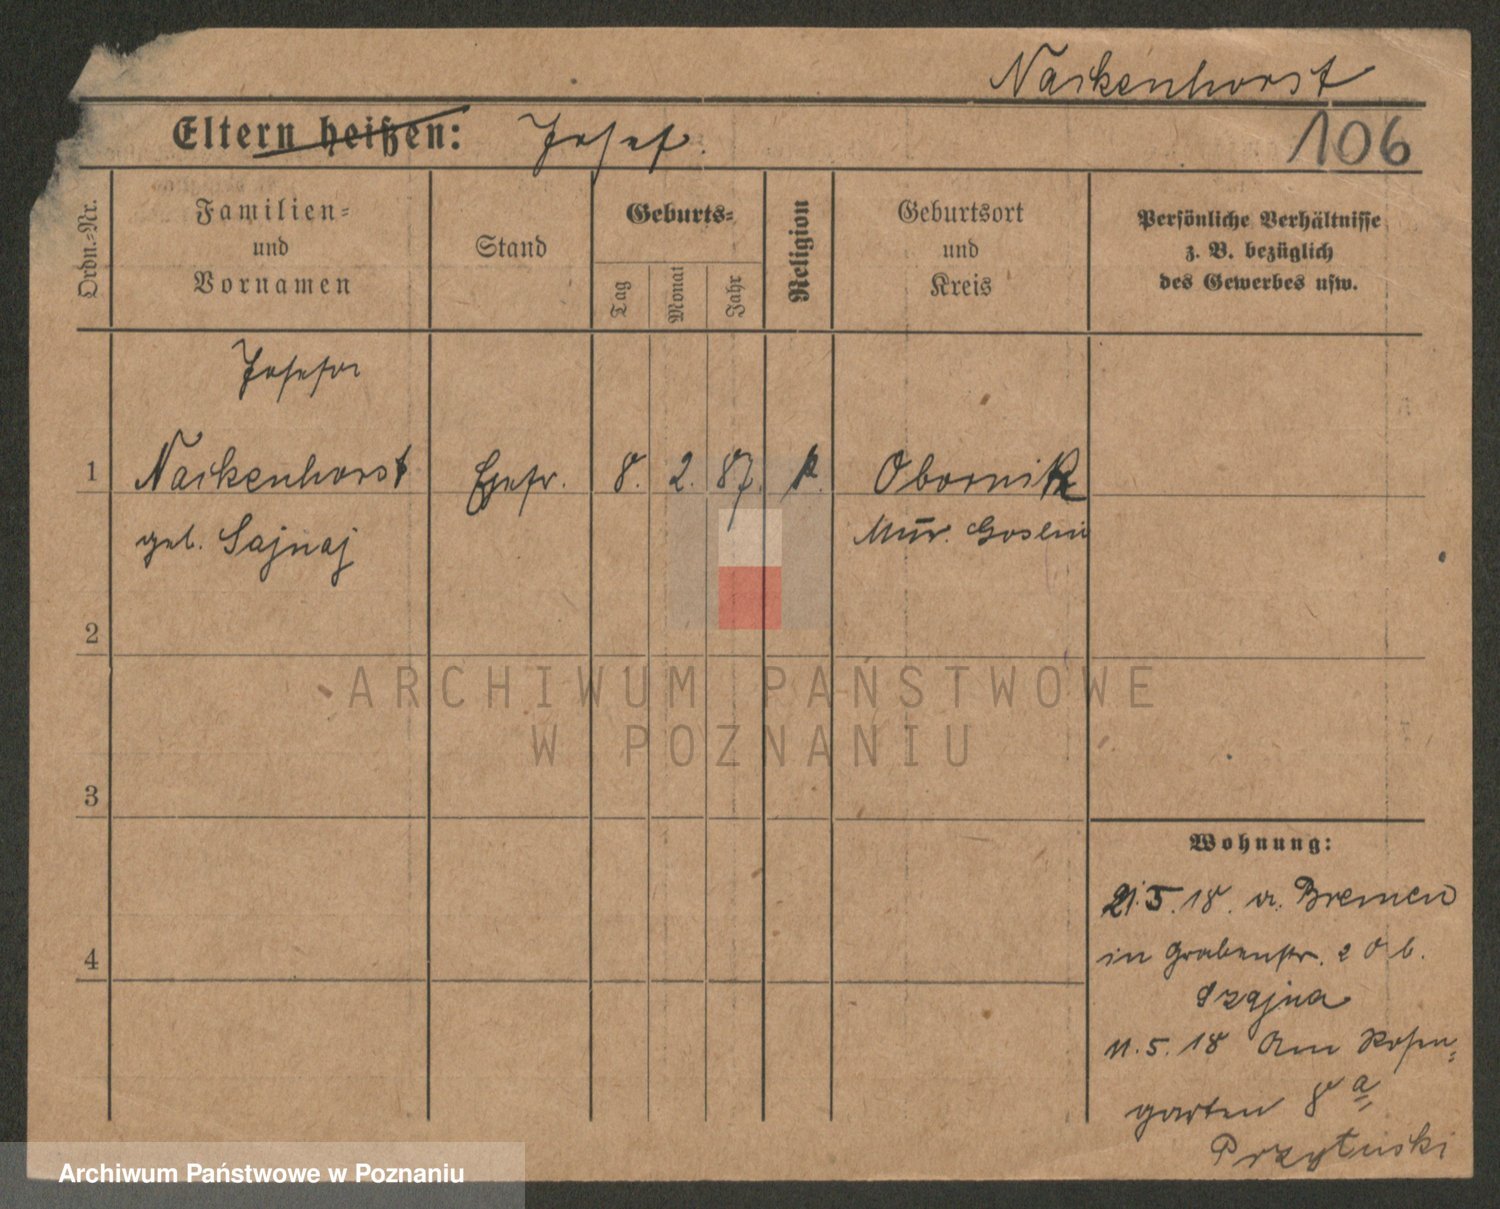 Nackenhorst
Eltern heißen: Josef.
106
Ordn.=Nr.
Familien=
und
Vornamen
Stand
Geburts=
Tag
Monat
Jahr
Religion
Geburtsort
und
Kreis
Persönliche Verhältnisse
z. B. bezüglich
des Gewerbes usw.
Josefa
1 Nackenhorst Ehefr. 8. 2. 87. k. Obornik
geb. Sajnaj Mur. Goslin
2
ARCHIWUM PAŃSTWOWE
W POZNANIU
3
Wohnung:
21.5.18. a. Bremen
in Grabenstr. 2 O b.
4
Szajna
11.5.18 Am Rosen=
garten 8 a
Przytuski
Archiwum Państwowe w Poznaniu